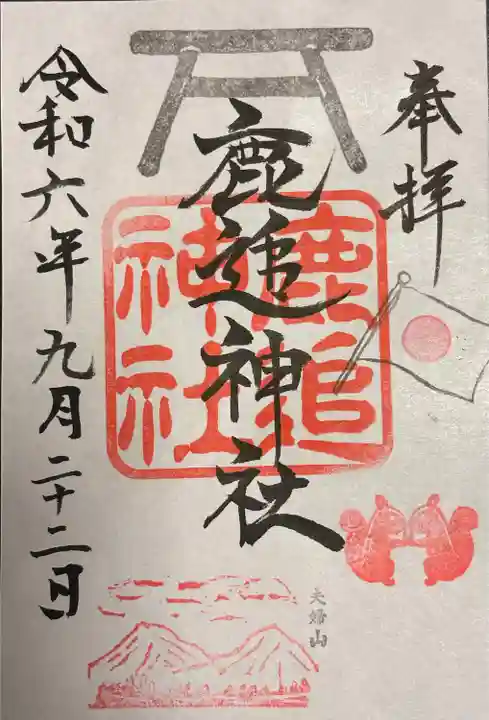 奉拝
鹿追神社
鹿追
神社
令和六年九月二十二日
夫婦山